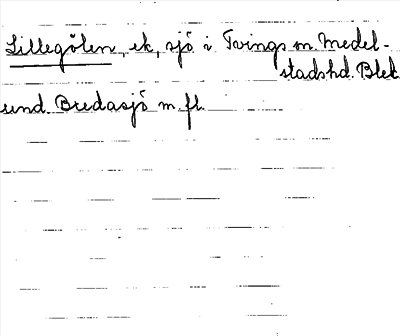 Lillegölen, ek, sjö i Tvings sn. Medel-
stadshd. Blek
und. Bredasjö m. fl.